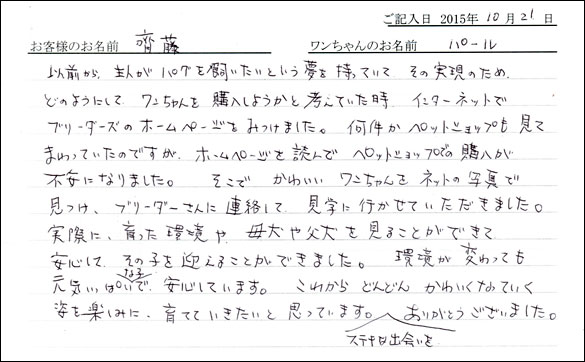 ご記入日 2015年10月21日
お客様のお名前 齊藤 ワンちゃんのお名前 パール
以前から、主人がパグを飼いたいという夢を持っていて その実現のため、
どのようにして ワンちゃんを 購入しようかと 考えていた時 インターネットで
ブリーダーズの ホームページを みつけました。 何件か ペットショップも 見て
まわっていたのですが、ホームページを 読んで ペットショップでの 購入が
不安になりました。 そこで かわいい ワンちゃんを ネットの 写真で
見つけ、ブリーダーさんに 連絡して 見学に 行かせていただきました。
実際に、育った 環境や 母犬や 父犬を 見ることができて
安心して その子を 迎えることができました。 環境が 変わっても
元気いっぱいな子で、安心しています。 これから どんどん かわいくなっていく
姿を楽しみに、育てていきたいと 思っています。 ステキな出会いを ありがとうございました。